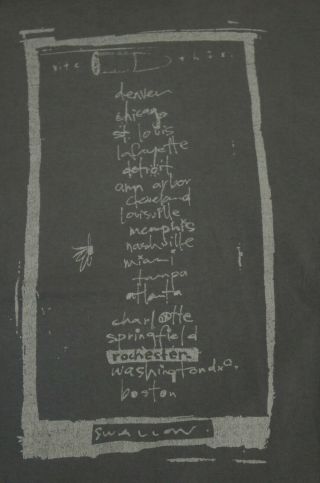 denver
chicago
st. louis
lafayette
detroit
ann arbor
cleveland
louisville
memphis
nashville
miami
tampa
atlanta
charlotte
springfield
rochester.
washington d.c.
boston
swallow.